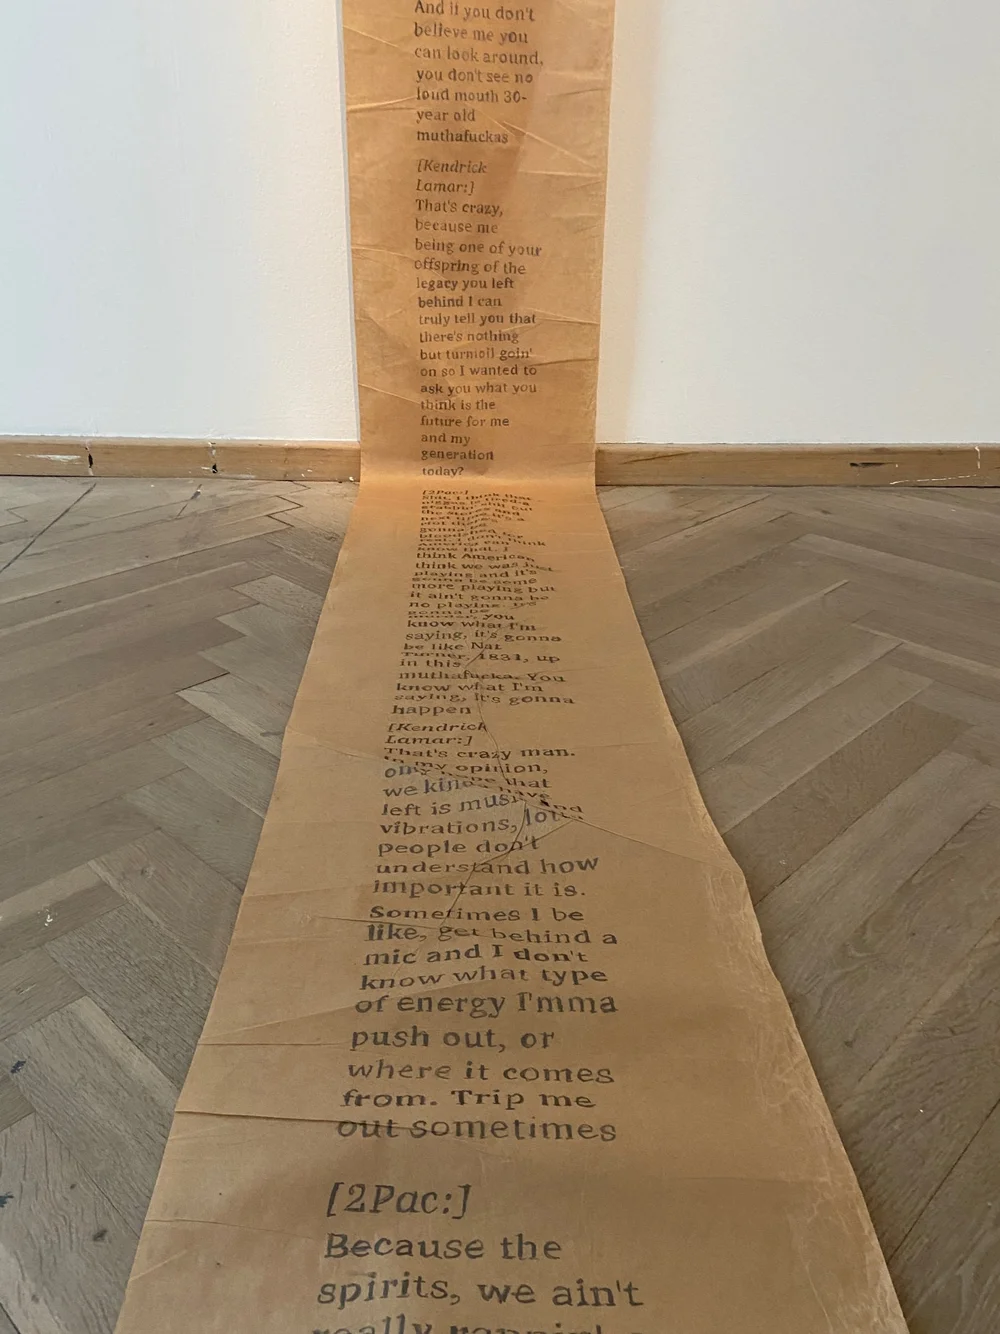 And if you don't
believe me you
can look around,
you don't see no
loud mouth 30-
year old
muthafuckas
[Kendrick
Lamar:]
That's crazy,
because me
being one of your
offspring of the
legacy you left
behind I can
truly tell you that
there's nothing
but turmoil goin'
on so I wanted to
ask you what you
think is the
future for me
and my
generation
today?
[2Pac:]
I think that
the stores and
next time it's a
gonna be
bloodshed for
America can think
know that. I
think American
think we was just
playing and it's
gonna be some
more playing but
it ain't gonna be
no playing. It's
gonna be
murder, you
know what I'm
saying, it's gonna
be like Nat
Turner, 1831, up
in this
muthafucka. You
know what I'm
saying, it's gonna
happen
[Kendrick
Lamar:]
That's crazy man.
In my opinion,
only hope that
we kinda have
left is music and
vibrations, lotta
people don't
understand how
important it is.
Sometimes I be
like, get behind a
mic and I don't
know what type
of energy I'mma
push out, or
where it comes
from. Trip me
out sometimes
[2Pac:]
Because the
spirits, we ain't
really rappin'